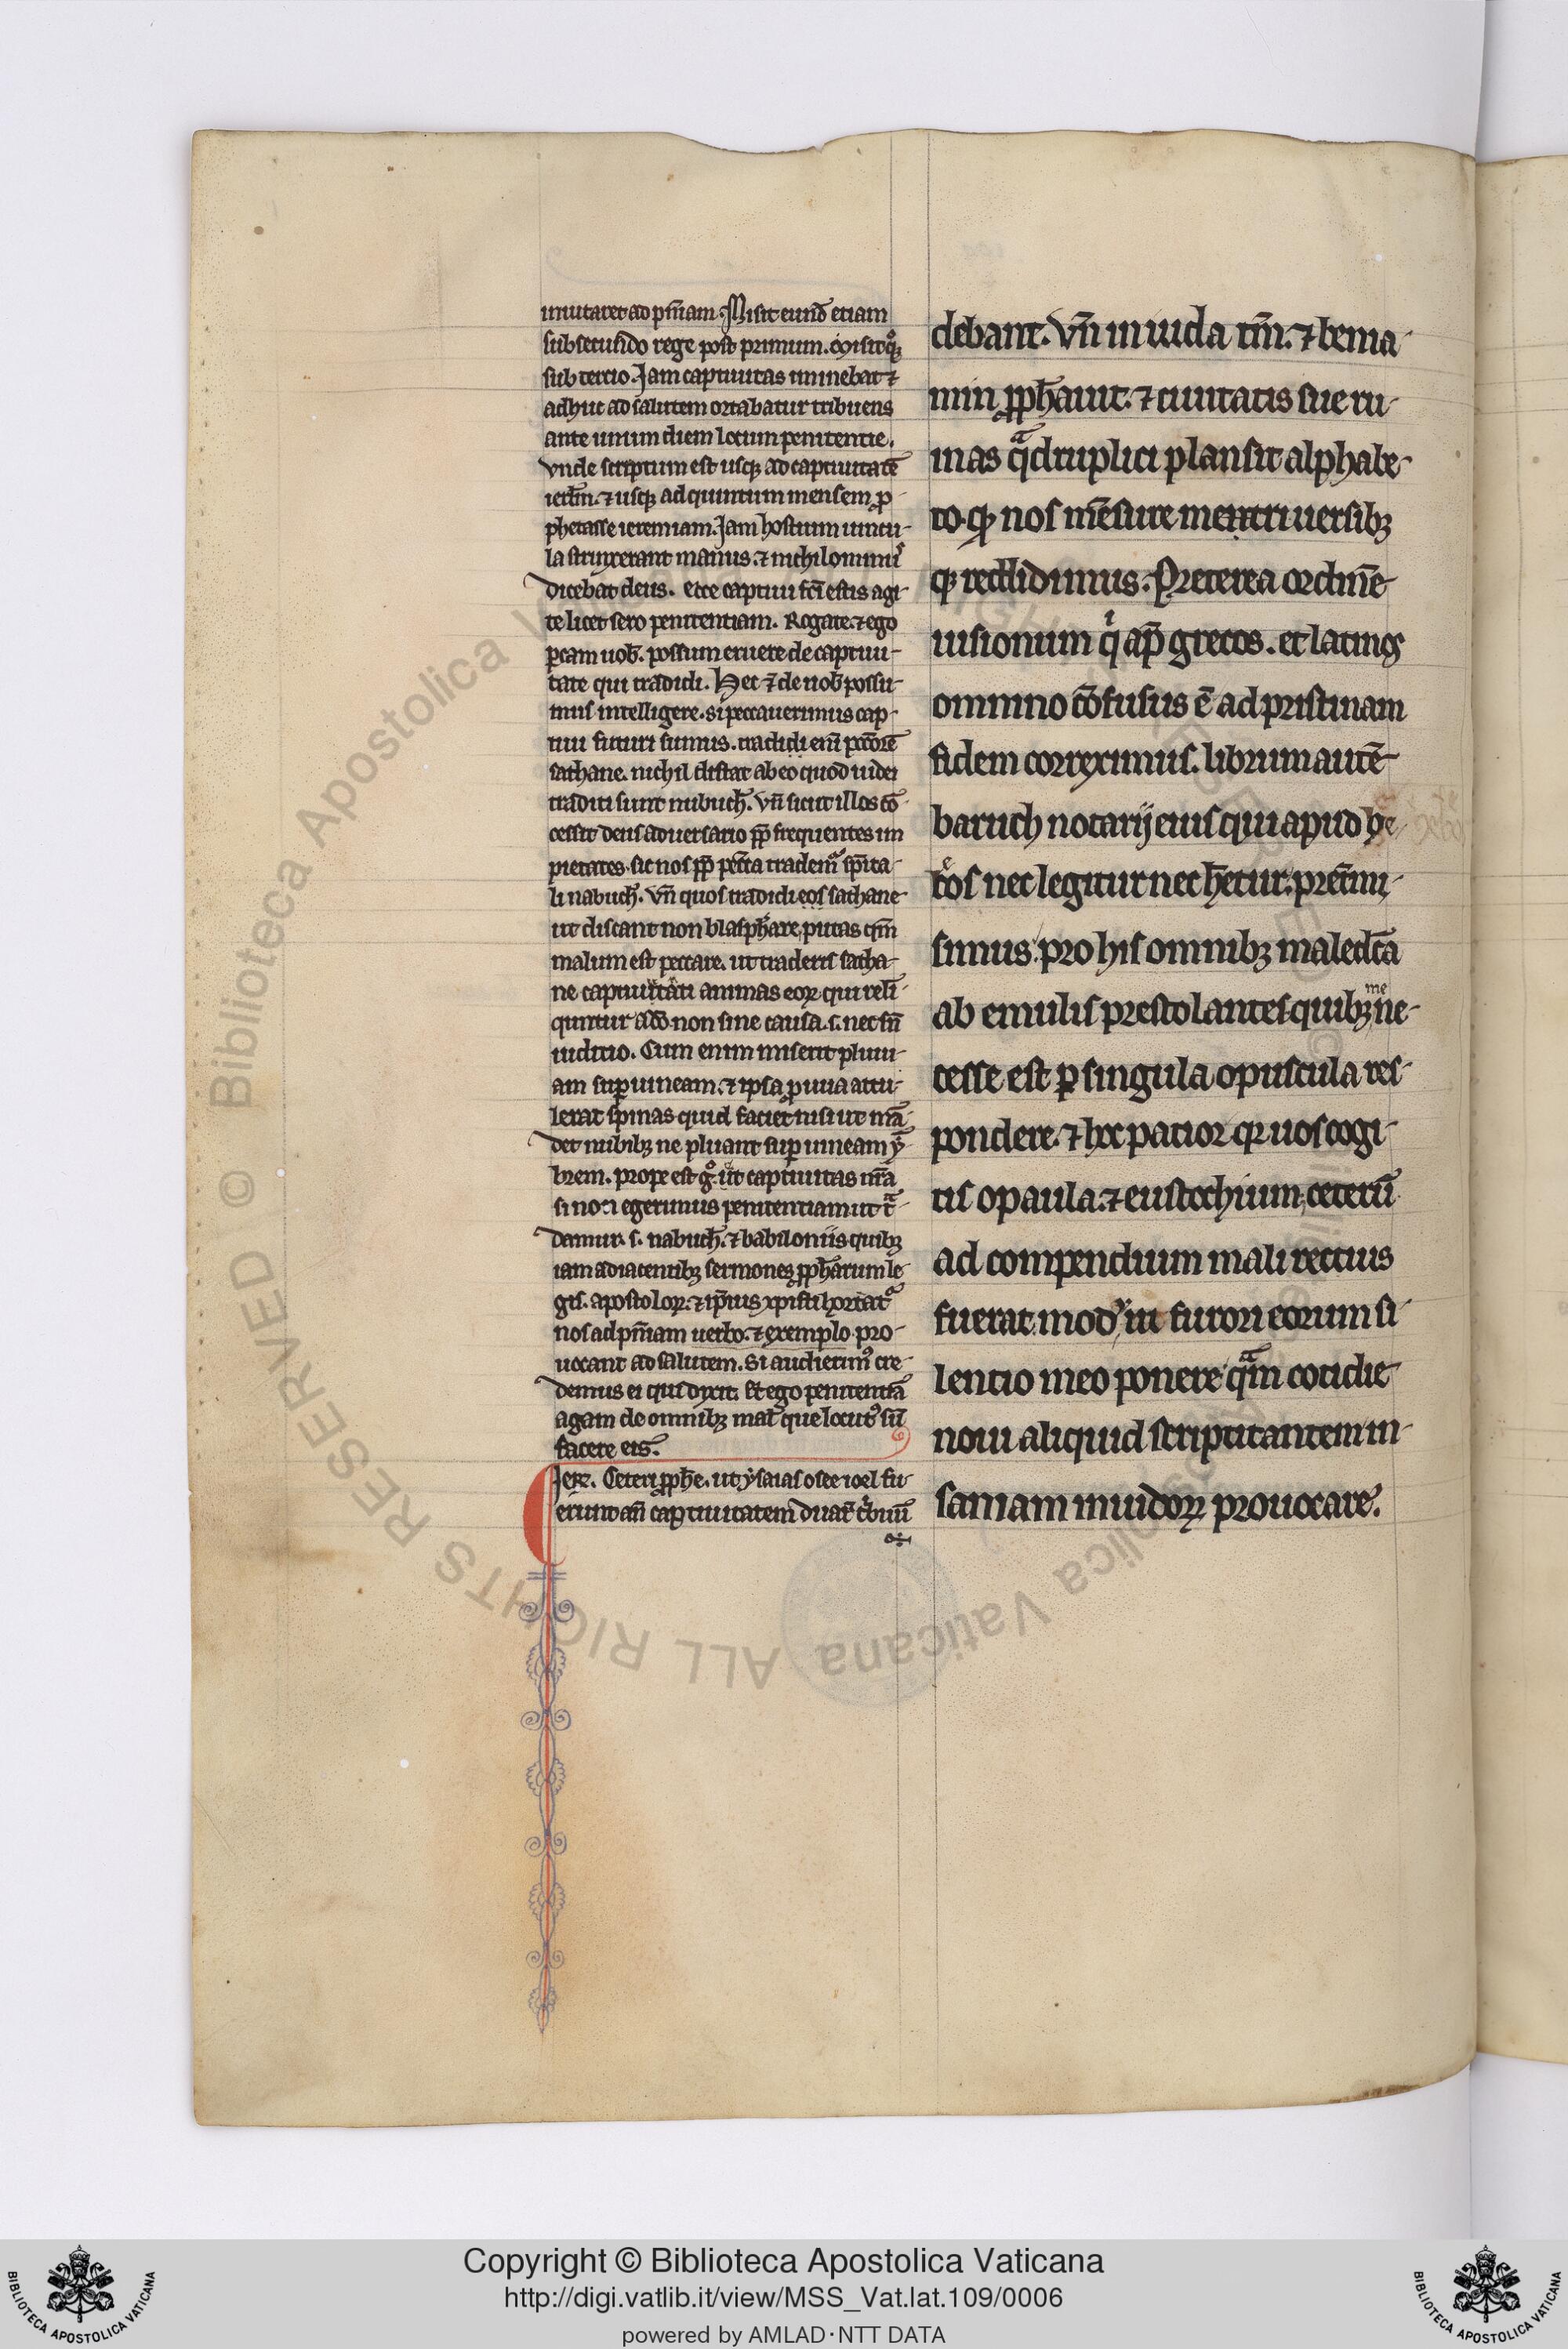 imutaret ad pn̄iam. Misit eund̄ etiam
sub secundo rege post primum. Misitqꝫ
sub tercio. Jam captiuitas iminebat ⁊
adhuc ad salutem ortabatur tribuens
ante unum diem locum penitentie.
Vnde scriptum est usqꝫ ad captiuitatē
ierl̄m. ⁊ usqꝫ ad quintum mensem ꝓ-
phetasse ieremiam. Jam hostium uincu-
la strinxerant manus. ⁊ nichilomin'
dicebat deus. Ecce captiui fc̄i estis agi-
te licet sero penitentiam. Rogate. ⁊ ego
ꝑcam uob̄. possum eruere de captiui-
tate qui tradidi. Hec ⁊ de nob̄ possu-
mus intelligere. si peccauerimus cap-
tiui futuri sumus. tradidi enī pcc̄orē
sathane. nichil distat ab eo quod iudei
traditi sunt nabuch̄. Vn̄ sicut illos cō-
cessit deus aduersario ꝓp̄ frequentes im
pietates. sic nos ꝓp̄ pcc̄ta trademur sp̄ita-
li nabuch̄. Vn̄ quos tradidi eos sathane
ut discant non blasph̄are putas qm̄
malum est peccare. ut traderis satha-
ne captiuitati animas eorꝝ qui reli-
quntur a deo non sine causa. s. nec sn̄
iudicio. Cum enim miserit pluui-
am suꝑ uineam. ⁊ ipsa ꝓ uua attu-
lerat spinas quid faciet nisi ut mā-
det nubibꝫ ne pluant suꝑ uineam ẏ
brem. prope est gͦ ut captiuitas nr̄a
si non egerimus penitentiam ut tͣ-
damur. s. nabuch̄. ⁊ babiloniis quibꝫ
iam adiacentibꝫ sermones ꝓph̄arum le-
gis. apostolorꝝ. ⁊ ip̄ius xp̄isti hortatͣ
nos ad pn̄iam uerbo. ⁊ exemplo. pro-
uocant ad salutem. Si audierim' cre-
demus ei qui dixit. Et ego penitentiā
agam de omnibꝫ mal̄ que locut' sū
facere eis.
Jerꝝ. Ceteri ꝓph̄e. ut ysaias osee ioel fu-
erunt an̄ captiuitatem duarꝝ tͥbuū
debant. Vn̄ in iuda tm̄. ⁊ benia-
min ꝓph̄auit. ⁊ ciuitatis sue ru-
inas qͣdruplici plansit alphabe-
to. qꝫ nos mēsure metri uersibꝫ
qꝫ reddidimus. Preterea ordinē
uisionum qͥ ap̄ grecos. et latinos
omnino cōfusus ē ad pristinam
fidem correximus. librum autē
baruch notarij eius qui apud he-
bͤos nec legitur nec h̄etur. pret̄mi-
simus. pro his omnibꝫ maledc̄a
ab emulis prestolantes quibꝫ me ne-
cesse est ꝑ singula opuscula res-
pondere. ⁊ hoc patior qꝛ uos cogi-
tis o paula. ⁊ eustochium. ceterū
ad compendium mali rectius
fuerat. mod' in furori eorum si-
lentio meo ponere qͣm cotidie
noui aliquid scriptitantem in-
saniam inuidorꝝ prouocare.
Copyright © Biblioteca Apostolica Vaticana
http://digi.vatlib.it/view/MSS_Vat.lat.109/0006
powered by AMLAD·NTT DATA